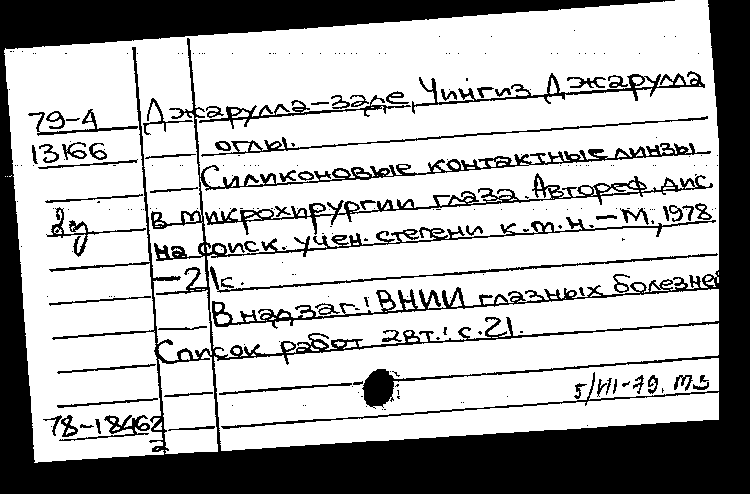 79-4 Джарулла-заде, Чингиз Джарулла
13166 оглы.
Силиконовые контактные линзы
в микрохирургии глаза. Автореф. дис.
на соиск. учен. степени к.м.н. - М., 1978
- 21с.
В надзаг.: ВНИИ глазных болезней
Список работ авт.: с. 21.
5/VII-79. МЗ
78-18462
2